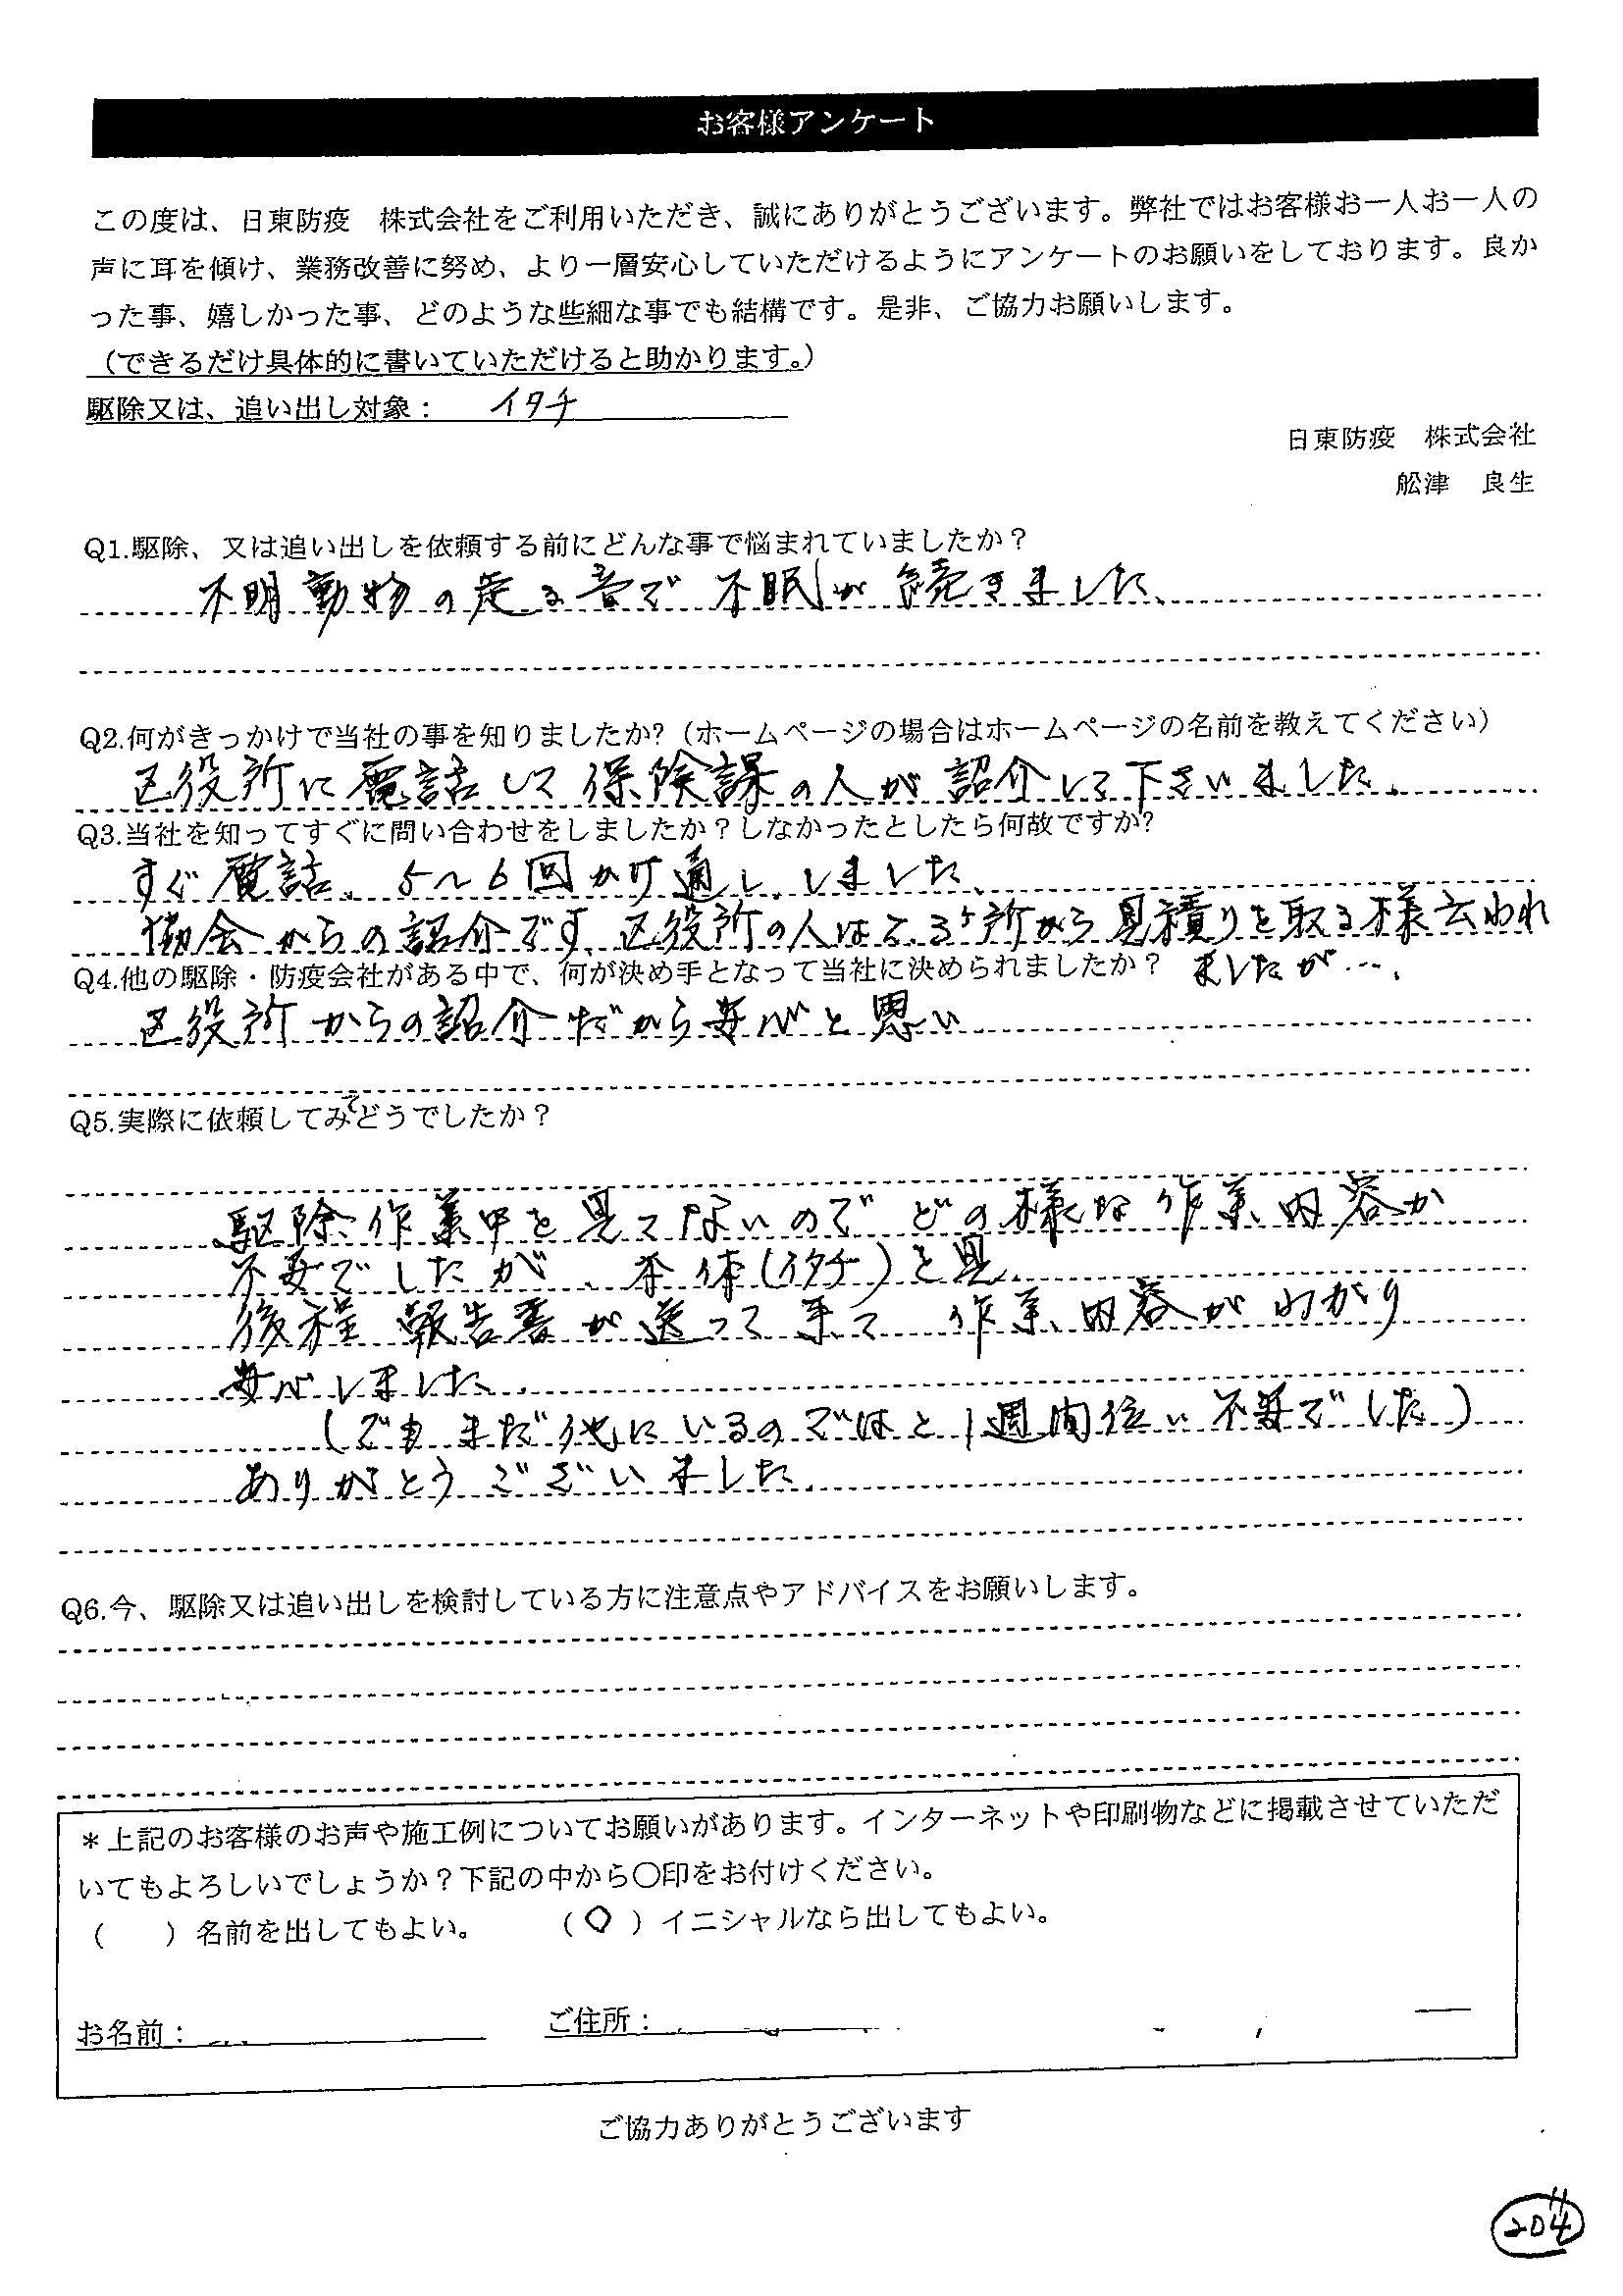 お客様アンケート
この度は、日東防疫　株式会社をご利用いただき、誠にありがとうございます。弊社ではお客様お一人お一人の
声に耳を傾け、業務改善に努め、より一層安心していただけるようにアンケートのお願いをしております。良か
った事、嬉しかった事、どのような些細な事でも結構です。是非、ご協力お願いします。
（できるだけ具体的に書いていただけると助かります。）
駆除又は、追い出し対象：　イタチ
日東防疫　株式会社
舩津　良生
Q1.駆除、又は追い出しを依頼する前にどんな事で悩まれていましたか？
不明動物の走る音で不眠が続きました、
Q2.何がきっかけで当社の事を知りましたか?（ホームページの場合はホームページの名前を教えてください）
区役所に電話して保険課の人が紹介して下さいました、
Q3.当社を知ってすぐに問い合わせをしましたか？しなかったとしたら何故ですか?
すぐ電話、5〜6回かけ通し、しました、
協会からの紹介です、区役所の人は ヶ所から見積りを取る様云われ
ましたが…、
Q4.他の駆除・防疫会社がある中で、何が決め手となって当社に決められましたか？
区役所からの紹介だから安心と思い
Q5.実際に依頼してみてどうでしたか？
駆除作業中を見てないのでどの様な作業内容か
不安でしたが、本体(イタチ)を見、
後程報告書が送って来て作業内容がわかり
安心しました、
(でもまだ他にいるのではと1週間位い不安でした)
ありがとうございました、
Q6.今、駆除又は追い出しを検討している方に注意点やアドバイスをお願いします。
＊上記のお客様のお声や施工例についてお願いがあります。インターネットや印刷物などに掲載させていただ
いてもよろしいでしょうか？下記の中から〇印をお付けください。
（　　）名前を出してもよい。　　（〇）イニシャルなら出してもよい。
お名前：　ご住所：
ご協力ありがとうございます
204